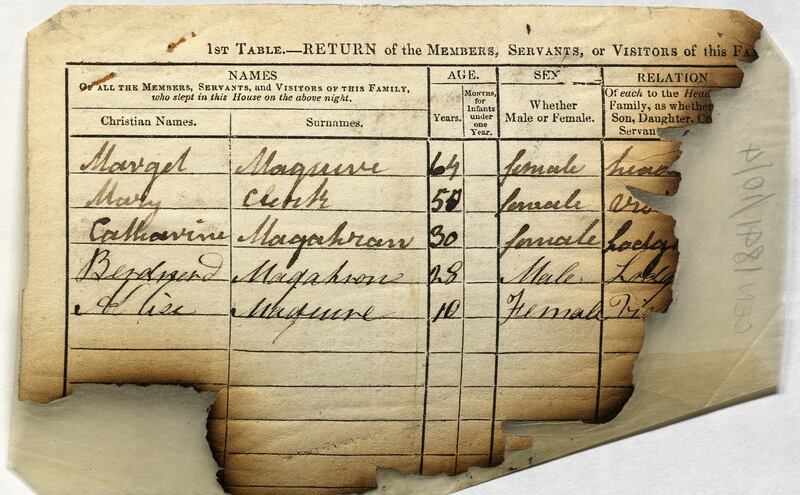 1ST TABLE.—RETURN of the MEMBERS, SERVANTS, or VISITORS of this FA
NAMES
OF ALL THE MEMBERS, SERVANTS, and VISITORS OF THIS FAMILY,
who slept in this House on the above night.
Christian Names.
Surnames.
AGE.
Years.
MONTHS,
for
Infants
under
one
Year.
SEX
Whether
Male or Female.
RELATION
Of each to the Head
Family, as whether
Son, Daughter, Co
Servan
Margel Maguire 64 female head
Mary Clerk 50 female Vis
Catharine Magahran 30 female Lodg
Magahron 28 Male Lodg
Maguire 10 Female Vis
CEN 1841/10/4